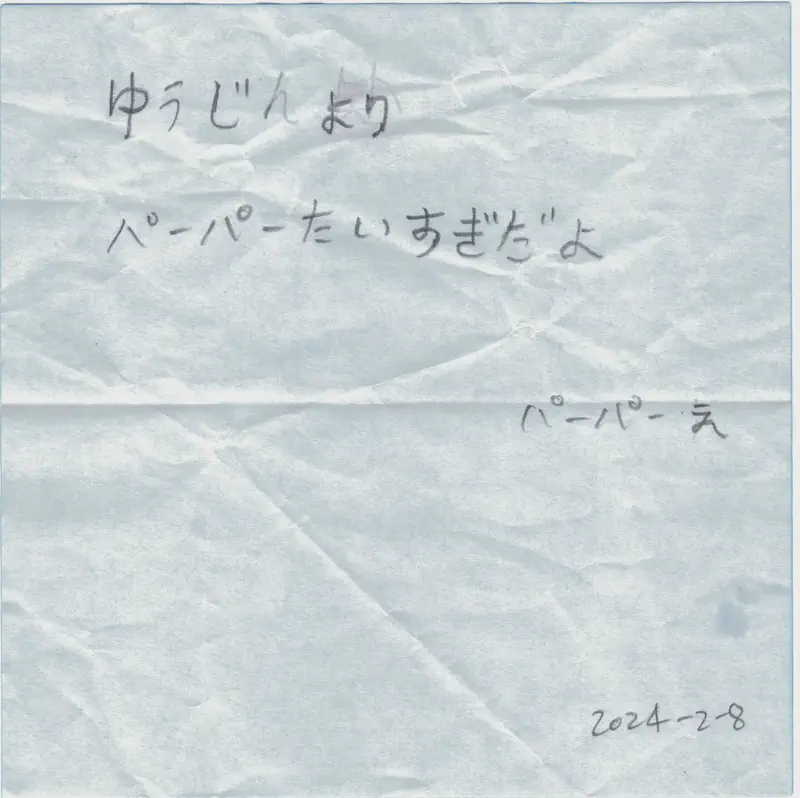 ゆうじんより
パーパーたいすぎだよ
パーパーえ
2024-2-8